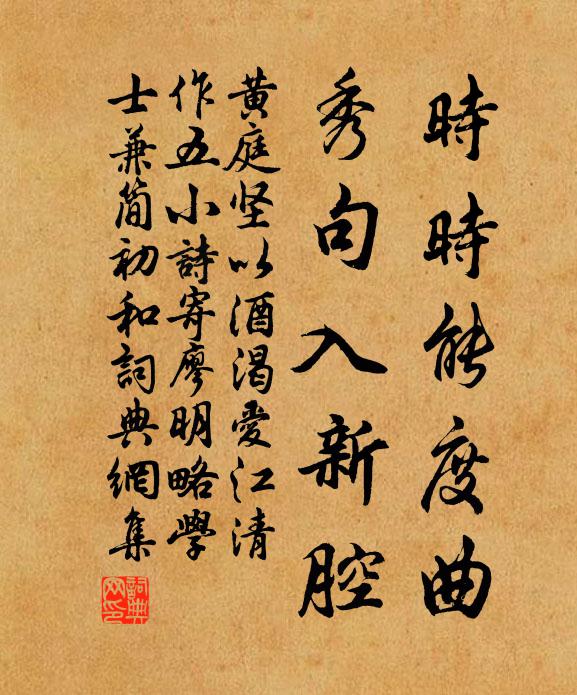 時時能度曲
秀句入新腔
黄庭坚以酒渴愛江清
作五小詩寄廖明略學
士兼简初和詞典網集
詞典網印